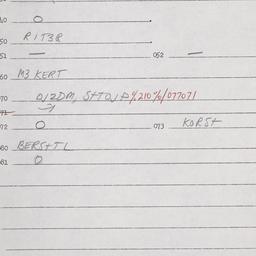 40 O
50 RIT38
51 — 052 —
60 M3 KERT
70 0,2DM, %210%/077071
71
72 O 073 KORST
80 BERSTTL
81 O